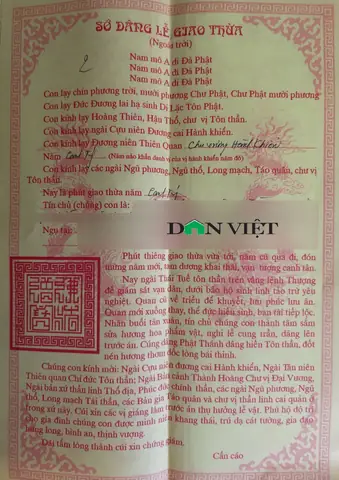 SỚ DÂNG LỄ GIAO THỪA
(Ngoài trời)
2
Nam mô A di Đà Phật
Nam mô A di Đà Phật
Nam mô A di Đà Phật
Con lạy chín phương trời, mười phương Chư Phật, Chư Phật mười phương
Con lạy Đức Đương lai hạ sinh Di Lặc Tôn Phật.
Con kính lạy Hoàng Thiên, Hậu Thổ, chư vị Tôn thần.
Con kính lạy ngài Cựu niên Đương cai Hành khiển.
Con kính lạy Đương niên Thiên Quan Chu vương Hành khiển
Năm Canh Tý (Năm nào khấn danh vị của vị hành khiển năm đó)
Con kính lạy các ngài Ngũ phương, Ngũ thổ, Long mạch, Táo quân, chư vị
Tôn thần.
Nay là phút giao thừa năm Canh Tý
Tín chủ (chúng) con là:
DÂN VIỆT
Ngụ tại:
Phút thiêng giao thừa vừa tới, năm cũ qua đi, đón
mừng năm mới, tam dương khai thái, vạn tượng canh tân.
Nay ngài Thái Tuế tôn thần trên vâng lệnh Thượng
đế giám sát vạn dân, dưới bảo hộ sinh linh tảo trừ yêu
nghiệt. Quan cũ về triều để khuyết, lưu phúc lưu ân.
Quan mới xuống thay, thể đức hiếu sinh, ban tài tiếp lộc.
Nhân buổi tân xuân, tín chủ chúng con thành tâm sắm
sửa hương hoa phẩm vật, nghi lễ cung trần, dâng lên
trước án. Cúng dâng Phật Thánh dâng hiến Tôn thần, đốt
nén hương thơm dốc lòng bái thỉnh.
Chúng con kính mời: Ngài Cựu niên đương cai Hành khiển, Ngài Tân niên
Thiên quan Chí đức Tôn thần; Ngài Bản cảnh Thành Hoàng Chư vị Đại Vương,
Ngài bản xứ thần linh Thổ địa, Phúc đức chính thần, các ngài Ngũ phương, Ngũ
thổ, Long mạch Tài thần, các Bản gia Táo quân và chư vị thần linh cai quản ở
trong xứ này. Cúi xin các vị giáng lâm trước án thụ hưởng lễ vật. Phù hộ độ trì
cho gia đình chúng con được minh niên khang thái, trừ dạ cát tường, gia đạo
hưng long, bình an, thịnh vượng.
Dãi tấm lòng thành cúi xin chứng giám.
Cẩn cáo